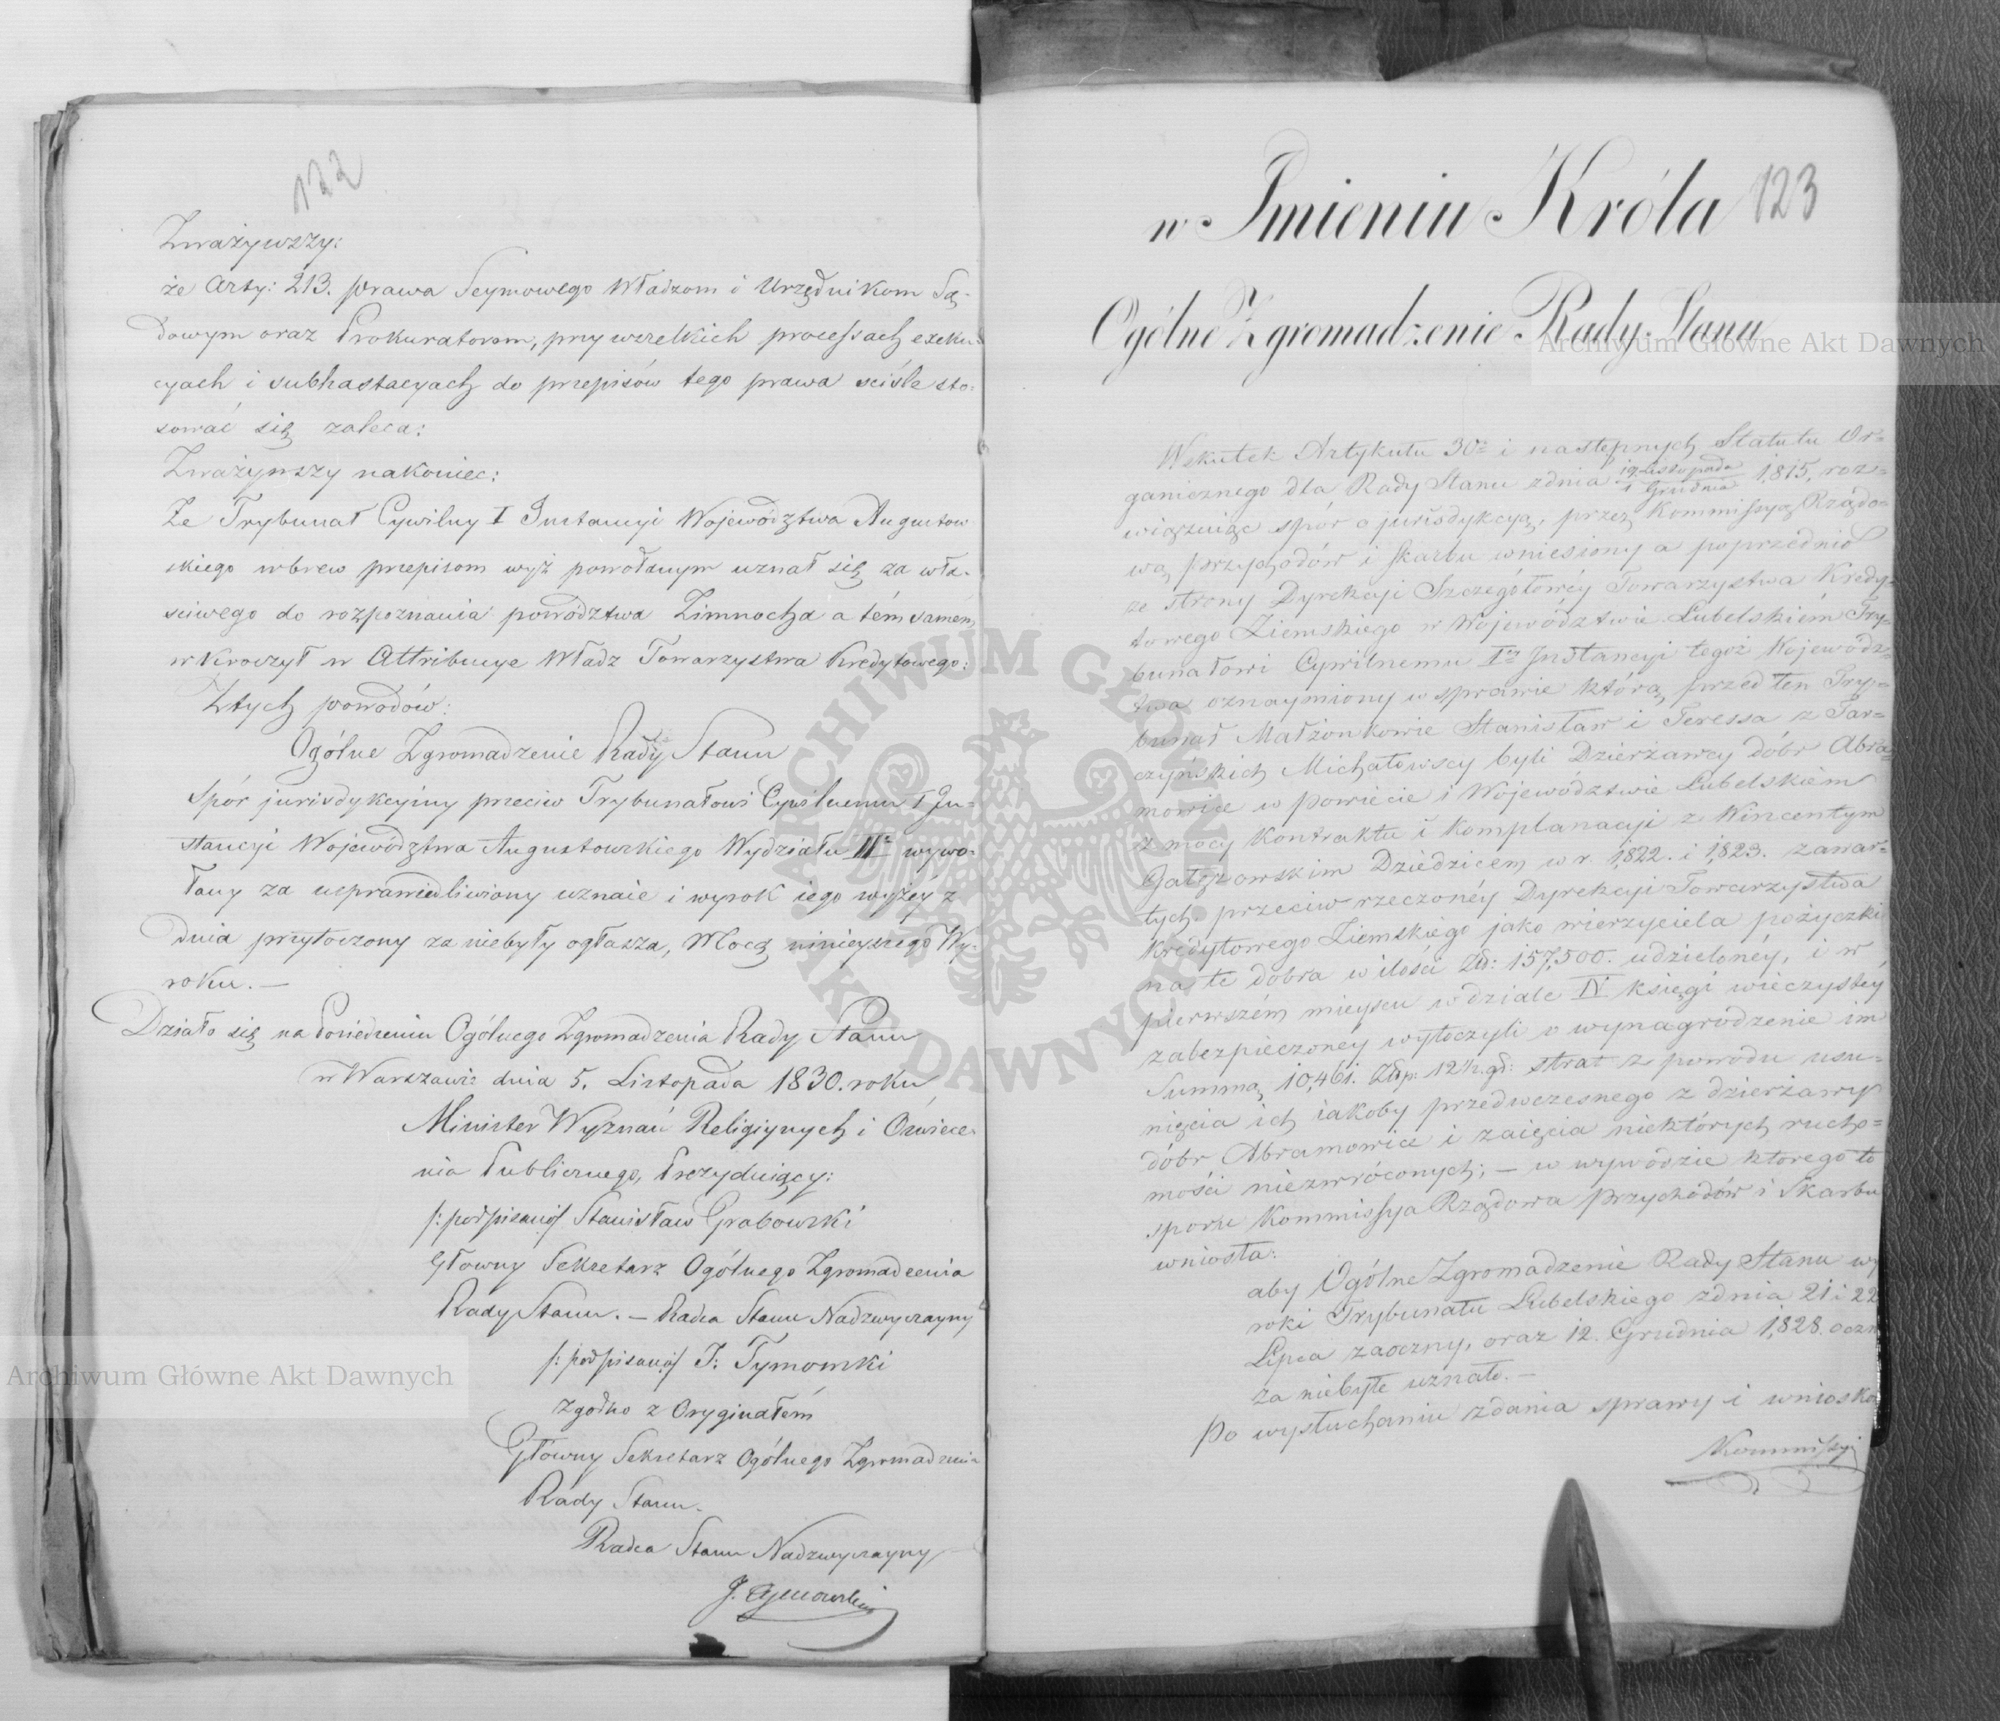 122
Zważywszy:
że Arty: 213. prawa Seymowego Władzom i Urzędnikom Są-
dowym oraz Prokuratorom, przy wszelkich processach exeku-
cyach i subhastacyach do przepisów tego prawa ściśle sto-
sować się zaleca:
Zważywszy nakoniec:
Że Trybunał Cywilny I Instancyi Województwa Augustow
skiego wbrew przepisom wyż powołanym uznał się za wła-
sciwego do rozpoznania powództwa Zimnocha a tém samém
wkroczył w Attribucye Władz Towarzystwa Kredytowego:
Z tych powodów:
Ogólne Zgromadzenie Rady Stanu
Spór jurisdykcyiny przeciw Trybunałowi Cywilnemu I In-
stancyi Województwa Augustowskiego Wydziału II° wywo-
łany za usprawiedliwiony uznaie i wyrok iego wyżéy z
dnia przytoczony za niebyły ogłasza, Mocą ninieyszego Wy-
roku. —
Działo się na Posiedzeniu Ogólnego Zgromadzenia Rady Stanu
w Warszawie dnia 5. Listopada 1830. roku
Minister Wyznań Religiynych i Oświece-
nia Publicznego, Prezyduiący:
/:podpisano:/ Stanisław Grabowski
Główny Sekretarz Ogólnego Zgromadzenia
Rady Stanu. — Radca Stanu Nadzwyczayny
/:podpisano:/ J: Tymowski
Zgodno z Oryginałém
Główny Sekretarz Ogólnego Zgromadzenia
Rady Stanu.
Radca Stanu Nadzwyczayny
J. Tymowski
123
w Imieniu Króla
Ogólne Zgromadzenie Rady Stanu
Wskutek Artykułu 30° i następnych Statutu Or-
ganicznego dla Rady Stanu z dnia 19 Listopada / 1 Grudnia 1,815, roz-
wiązuiąc spór o jurisdykcyą, przez Kommissyą Rządo-
wą przychodów i skarbu wniesiony a poprzednio
ze strony Dyrekcyi Szczegółowéy Towarzystwa Kredy-
towego Ziemskiego w Województwie Lubelskiém Try-
bunałowi Cywilnemu I° Instancyi tegoż Wojewódz-
twa oznaymiony w sprawie którą przed ten Try-
bunał Małżonkowie Stanisław i Teressa z Tar-
czyńskich Michałowscy byli Dzierżawcy dóbr Abra-
mowice w powiecie i Województwie Lubelskiém
z mocy Kontraktu i Komplanacyi z Wincentym
Gałęzowskim Dziedzicem w r. 1,822. i 1,823. zawar-
tych przeciw rzeczonéy Dyrekcyi Towarzystwa
Kredytowego Ziemskiego jako wierzyciela pożyczki
na te dobra w ilości Zł: 157,500. udzielonéy, i w
pierwszém mieyscu w dziale IV księgi wieczystéy
zabezpieczoney wytoczyli o wynagrodzenie im
Summą 10,461. Złp: 12½ gr: strat z powodu usu-
nięcia ich iakoby przedwczesnego z dzierżawy
dóbr Abramowice i zaięcia niektórych rucho-
mości niezwróconych; — w wywodzie którego to
sporu Kommissya Rządowa przychodów i Skarbu
wniosła:
aby Ogólne Zgromadzenie Rady Stanu wy
roki Trybunału Lubelskiego z dnia 21 i 22
Lipca zaoczny, oraz 12. Grudnia 1,828. oczn
za niebyłe uznało. —
Po wysłuchaniu zdania sprawy i wniosku
Kommissyi
Archiwum Główne Akt Dawnych
Archiwum Główne Akt Dawnych
ARCHIWUM GŁÓWNE AKT DAWNYCH